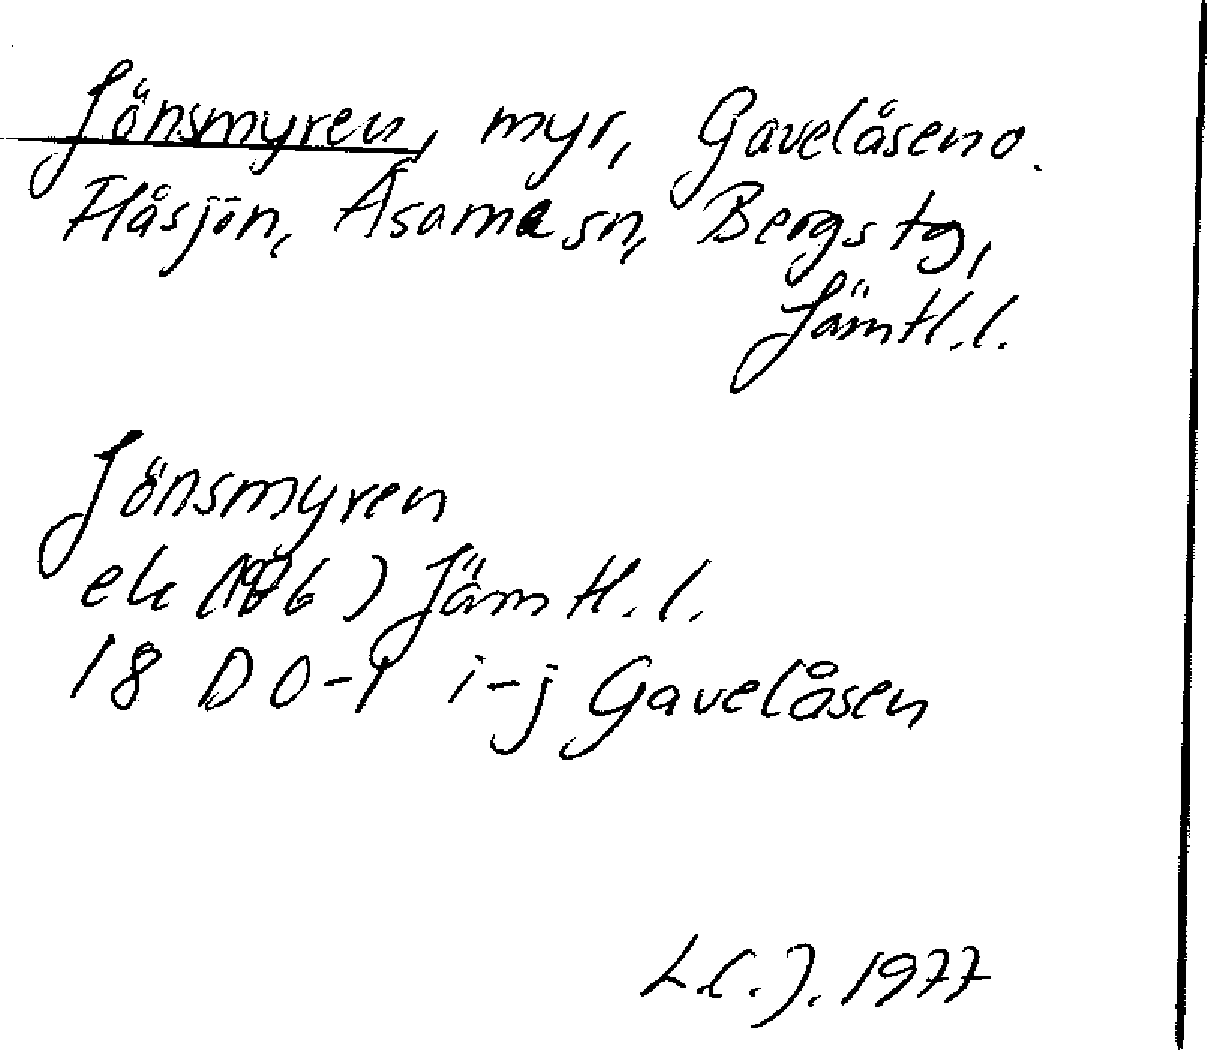 Jönsmyren, myr, Gavelåsen o.
Flåsjön, Åsarne sn, Bergs tg,
Jämtl.l.
Jönsmyren
ek Jämtl.l.
18 D 0-1 i-j Gavelåsen
L.C.J. 1977